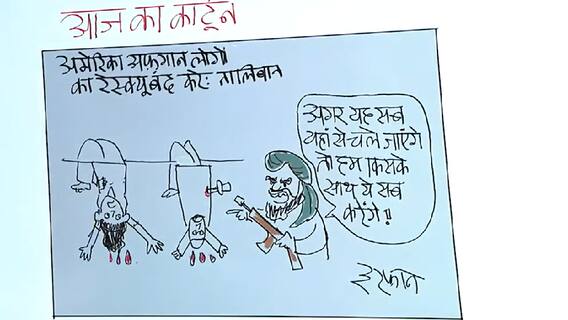 आज का कार्टून
अमेरिका अफ़गान लोगों
का रेस्क्यू बंद करे: तालिबान
अगर यह सब
यहां से चले जाएंगे
तो हम किसके
साथ ये सब
करेंगे!!
इरफ़ान